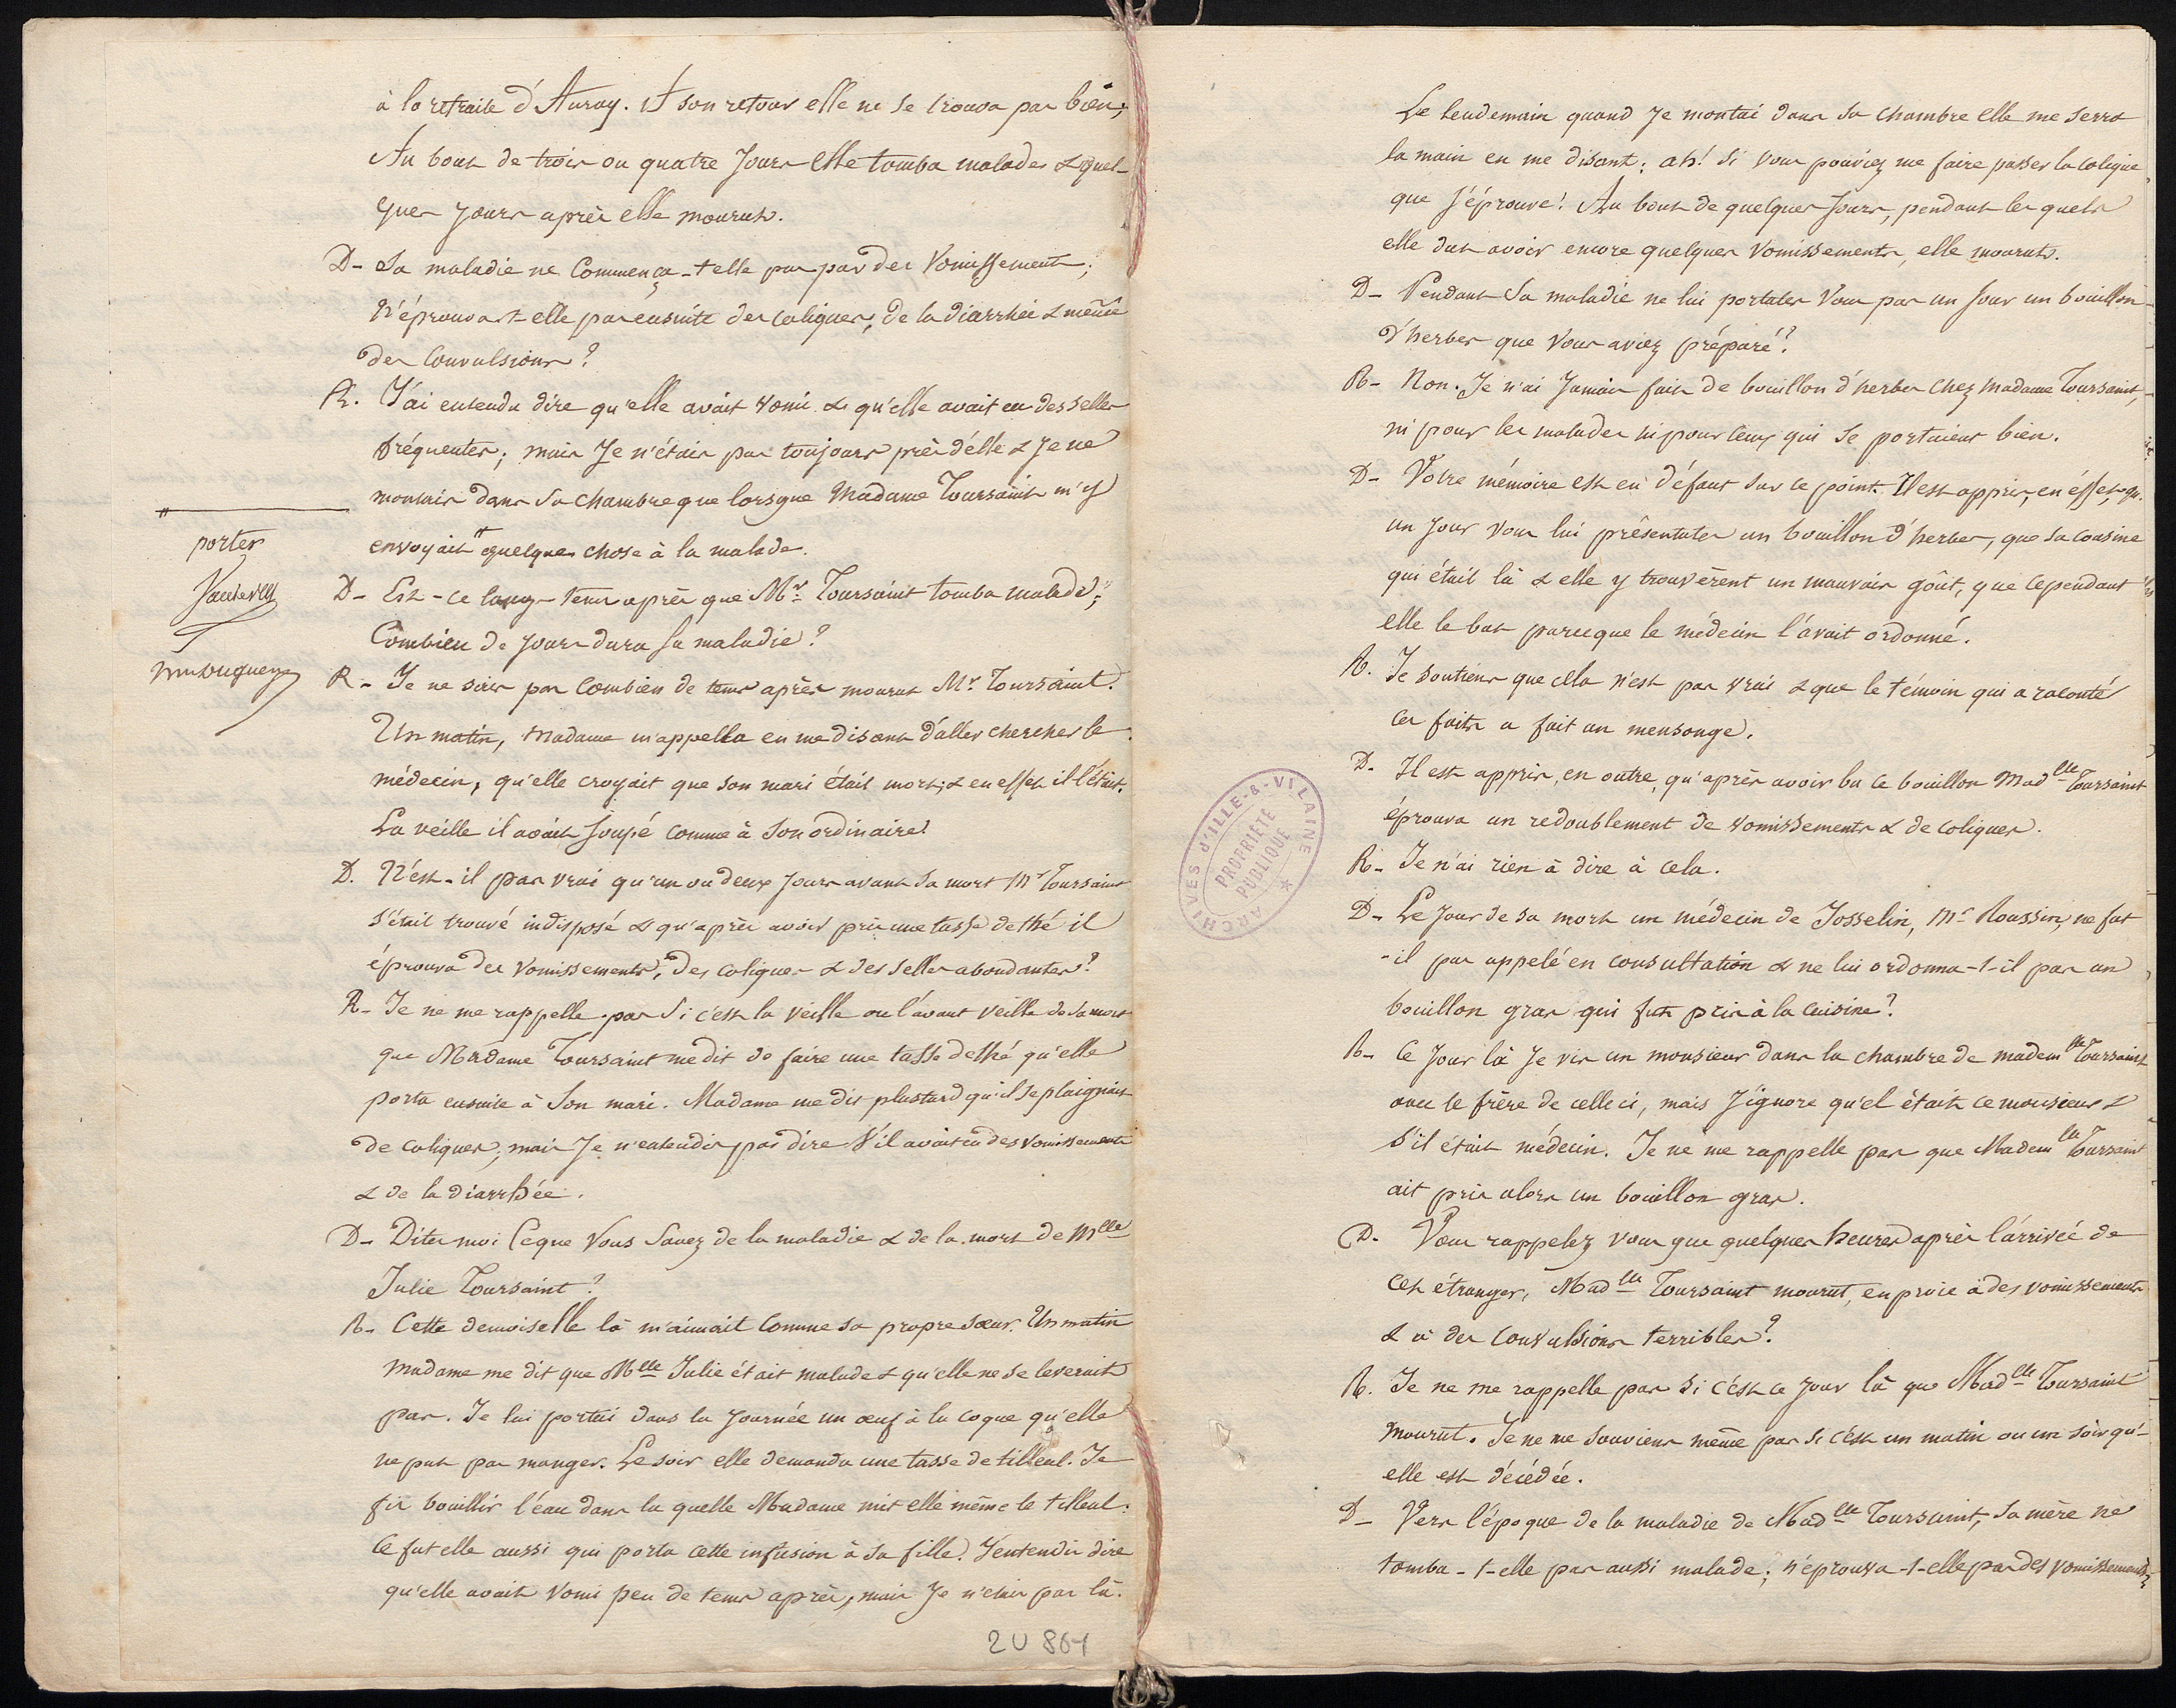 à la retraite d'Auray. A son retour elle ne se trouva pas bien;
Au bout de trois ou quatre jours elle tomba malade & quel-
ques jours après elle mourut.
D- Sa maladie ne commença-t elle pas par des vomissements;
N'éprouva-t-elle pas ensuite des coliques, de la diarrhée & même
des convulsions?
R. J'ai entendu dire qu'elle avait vomi & qu'elle avait eu des selles
fréquentes; mais je n'étais pas toujours près d'elle & je ne
montais dans sa chambre que lorsque Madame Toursaint m'y
envoyait " quelque chose à la malade.
"
porter
D- Est-ce long-tems après que Mr Toursaint tomba malade;
Combien de jours dura sa maladie?
R- Je ne sais pas combien de tems après mourut Mr Toursaint.
Un matin, Madame m'appella en me disant d'aller chercher le
médecin, qu'elle croyait que son mari était mort; & en effet il l'était.
La veille il avait soupé comme à son ordinaire.
D. N'est-il pas vrai qu'un ou deux jours avant sa mort Mr Toursaint
s'était trouvé indisposé & qu'après avoir pris une tasse de thé il
éprouva des vomissements, des coliques & des selles abondantes?
R- Je ne me rappelle pas si c'est la veille ou l'avant veille de sa mort
que Madame Toursaint me dit de faire une tasse de thé qu'elle
porta ensuite à son mari. Madame me dit plustard qu'il se plaignait
de coliques, mais je n'entendis pas dire s'il avait eu des vomissements
& de la diarrhée.
D- Dites moi ce que vous savez de la maladie & de la mort de Mlle
Julie Toursaint?
R- Cette demoiselle là m'aimait comme sa propre sœur. Un matin
Madame me dit que Mlle Julie était malade & qu'elle ne se leverait
pas. Je lui portai dans la journée un œuf à la coque qu'elle
ne put pas manger. Le soir elle demanda une tasse de tilleul. Je
fis bouillir l'eau dans la quelle Madame mit elle même le tilleul.
Ce fut elle aussi qui porta cette infusion à sa fille. J'entendis dire
qu'elle avait vomi peu de tems après, mais je n'étais pas là.
2 U 861
Le lendemain quand je montai dans sa chambre elle me serra
la main en me disant: ah! si vous pouviez me faire passer la colique
que j'éprouve! Au bout de quelques jours, pendant les quels
elle dut avoir encore quelques vomissements, elle mourut.
D- Pendant sa maladie ne lui portates vous pas un jour un bouillon
d'herbes que vous aviez préparé?
R- Non. Je n'ai jamais fait de bouillon d'herbes chez Madame Toursaint,
ni pour les malades ni pour ceux qui se portaient bien.
D- Votre mémoire est en défaut sur ce point. Il est appris, en effet, qu'
un jour vous lui présentates un bouillon d'herbes, que sa cousine
qui était là & elle y trouvèrent un mauvais goût, que cependant
elle le but parceque le médecin l'avait ordonné.
R. Je soutiens que cela n'est pas vrai & que le témoin qui a raconté
ces faits a fait un mensonge.
D. Il est appris, en outre, qu'après avoir bu ce bouillon Madlle Toursaint
éprouva un redoublement de vomissements & de coliques.
R- Je n'ai rien à dire à cela.
D- Le jour de sa mort un médecin de Josselin, Mr Roussin, ne fut
-il pas appelé en consultation & ne lui ordonna-t-il pas un
bouillon gras qui fut pris à la cuisine?
R- Ce jour là je vis un monsieur dans la chambre de mademlle Toursaint
avec le frère de celle ci, mais j'ignore qu'el était ce monsieur &
s'il était médecin. Je ne me rappelle pas que Mademlle Toursaint
ait pris alors un bouillon gras.
D. Vous rappelez vous que quelques heures après l'arrivée de
cet étranger, Madlle Toursaint mourut, en proie à des vomissements
& à des convulsions terribles?
R. Je ne me rappelle pas si c'est ce jour là que Madlle Toursaint
mourut. Je ne me souviens même pas si c'est un matin ou un soir qu'-
elle est décédée.
D- Vers l'époque de la maladie de Madlle Toursaint, sa mère ne
tomba-t-elle pas aussi malade; n'éprouva-t-elle pas des vomissements,
ARCHIVES d'ILLE-&-VILAINE
PROPRIÉTÉ
PUBLIQUE